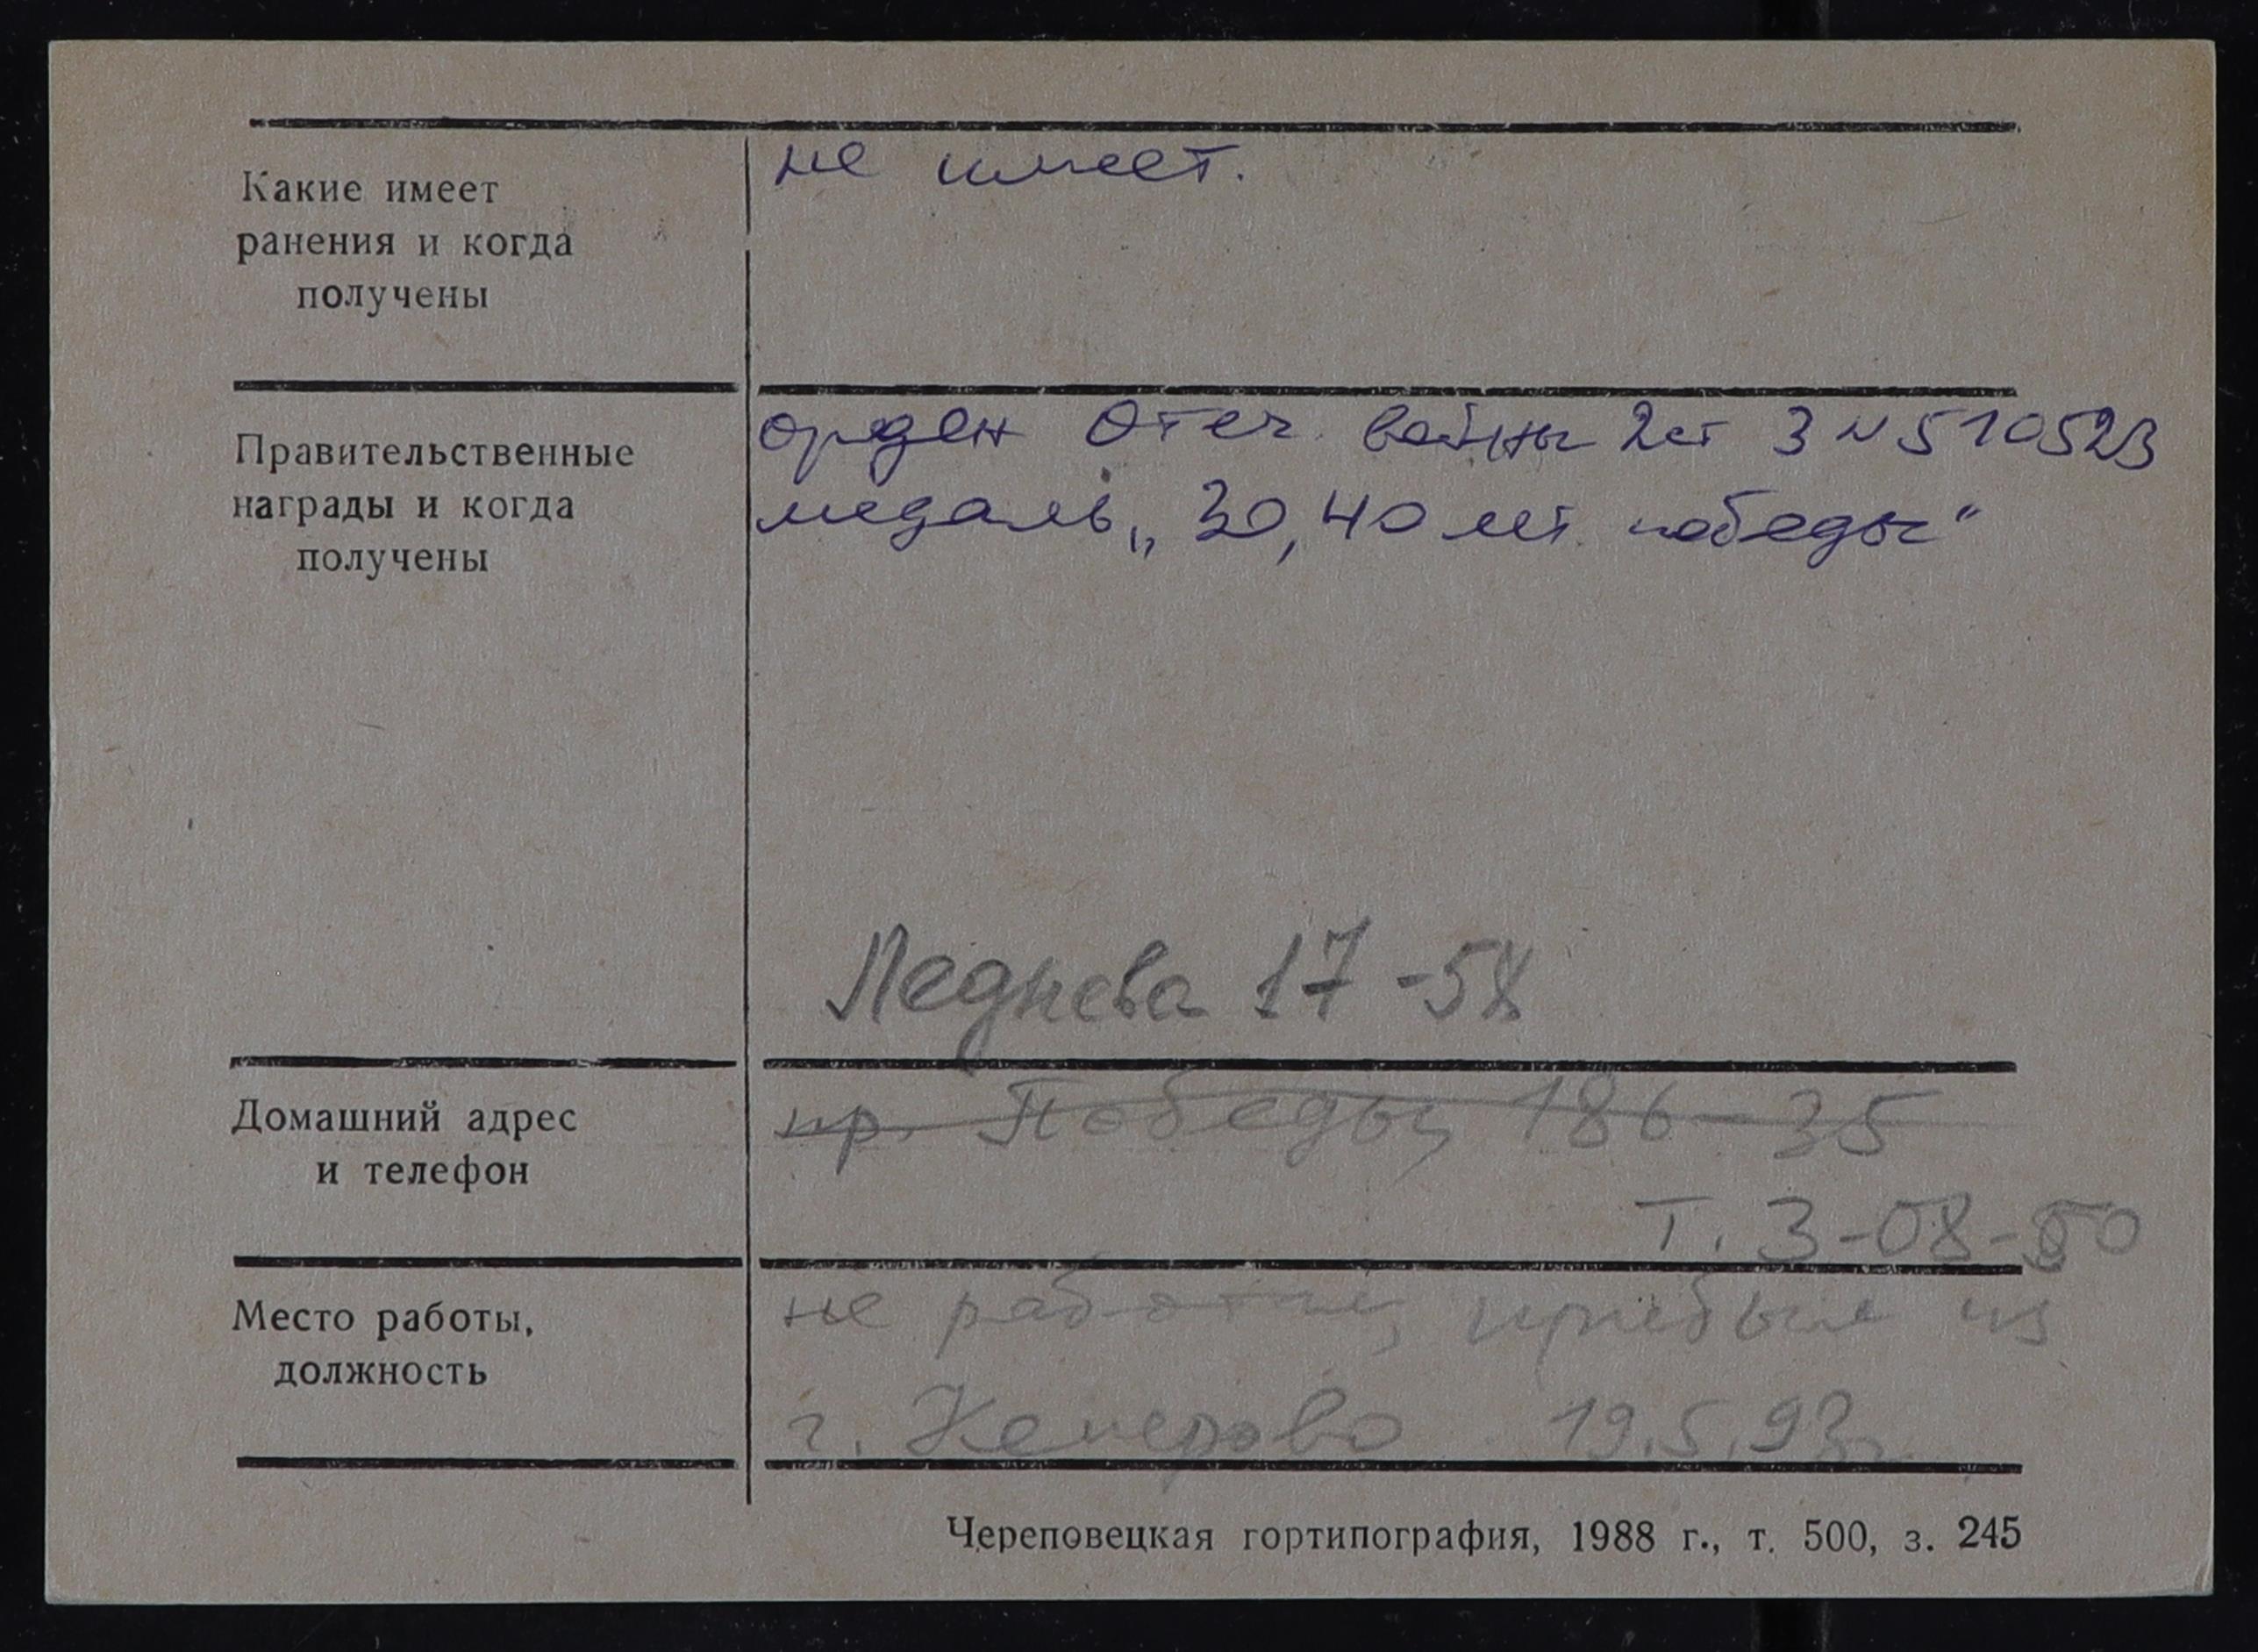 Какие имеет
ранения и когда
получены
не имеет.
Правительственные
награды и когда
получены
орден Отеч. войны 2ст З N 510523
медаль „30, 40 лет победы"
Леднева 17-58
Домашний адрес
и телефон
пр. Победы, 186-35
Т. 3-08-50
Место работы,
должность
не работает, прибыл из
г. Кемерово 19.5.93г.
Череповецкая гортипография, 1988 г., т. 500, з. 245